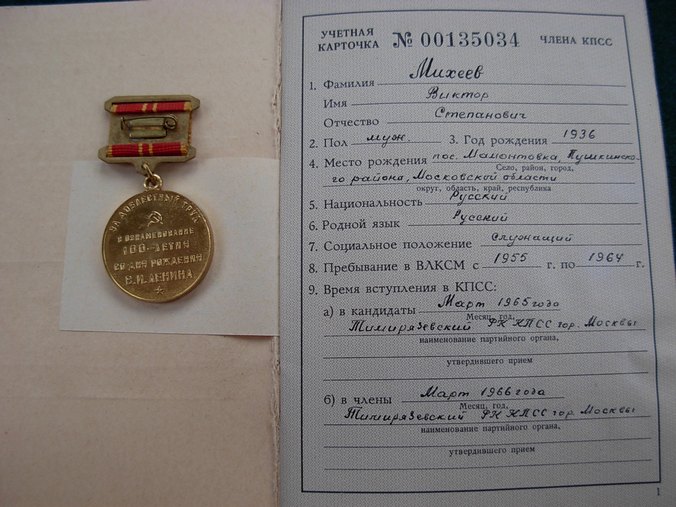 ЗА ДОБЛЕСТНЫЙ ТРУД
В ОЗНАМЕНОВАНИЕ
100-ЛЕТИЯ
СО ДНЯ РОЖДЕНИЯ
В.И.ЛЕНИНА
УЧЕТНАЯ КАРТОЧКА № 00135034 ЧЛЕНА КПСС
1. Фамилия Михеев
Имя Виктор
Отчество Степанович
2. Пол муж. 3. Год рождения 1936
4. Место рождения пос. Мамонтовка, Пушкинско-
Село, район, город,
го района, Московской области
округ, область, край, республика
5. Национальность Русский
6. Родной язык Русский
7. Социальное положение Служащий
8. Пребывание в ВЛКСМ с 1955 г. по 1964 г.
9. Время вступления в КПСС:
а) в кандидаты Март 1965 года
Месяц, год,
Тимирязевский РК КПСС гор. Москвы
наименование партийного органа,
утвердившего прием
б) в члены Март 1966 года
Месяц, год,
Тимирязевский РК КПСС гор. Москвы
наименование партийного органа,
утвердившего прием
1